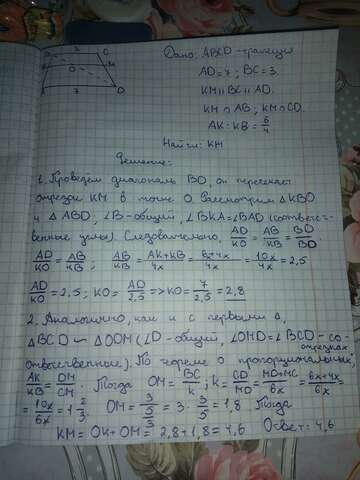 3
C
K
O
M
7
D
Дано: ABCD-трапеция
AD=7; BC=3.
KM || BC || AD.
KM ∩ AB; KM ∩ CD.
AK:KB = 6/4
Найти: KM
Решение:
1. Проведем диагональ BD, он пересекает
отрезок KM в точке O. Рассмотрим △KBO
и △ABD, ∠B-общий, ∠BKA=∠BAD (соответст-
венные углы). Следовательно, AD/KO = AB/KB = BD/BD
AD/KO = AB/KB; AB/KB = AK+KB/4x = 6x+4x/4x = 10x/4x = 2,5
AD/KO = 2,5; KO = AD/2,5 => KO = 7/2,5 = 2,8
2. Аналогично, как и с первыми △,
△BCD ∽ △OOM (∠D-общий, ∠OMD=∠BCD-со-
ответственные). По теореме о пропорциональных отрезках
AK/KB = DM/CM. Тогда OM = BC/k; k = CD/MD = MD+MC/6x = 6x+4x/6x =
= 10x/6x = 1 2/3. OM = 3/(5/3) = 3 · 3/5 = 1,8. Тогда
KM = OK+OM = 2,8+1,8 = 4,6 Ответ: 4,6